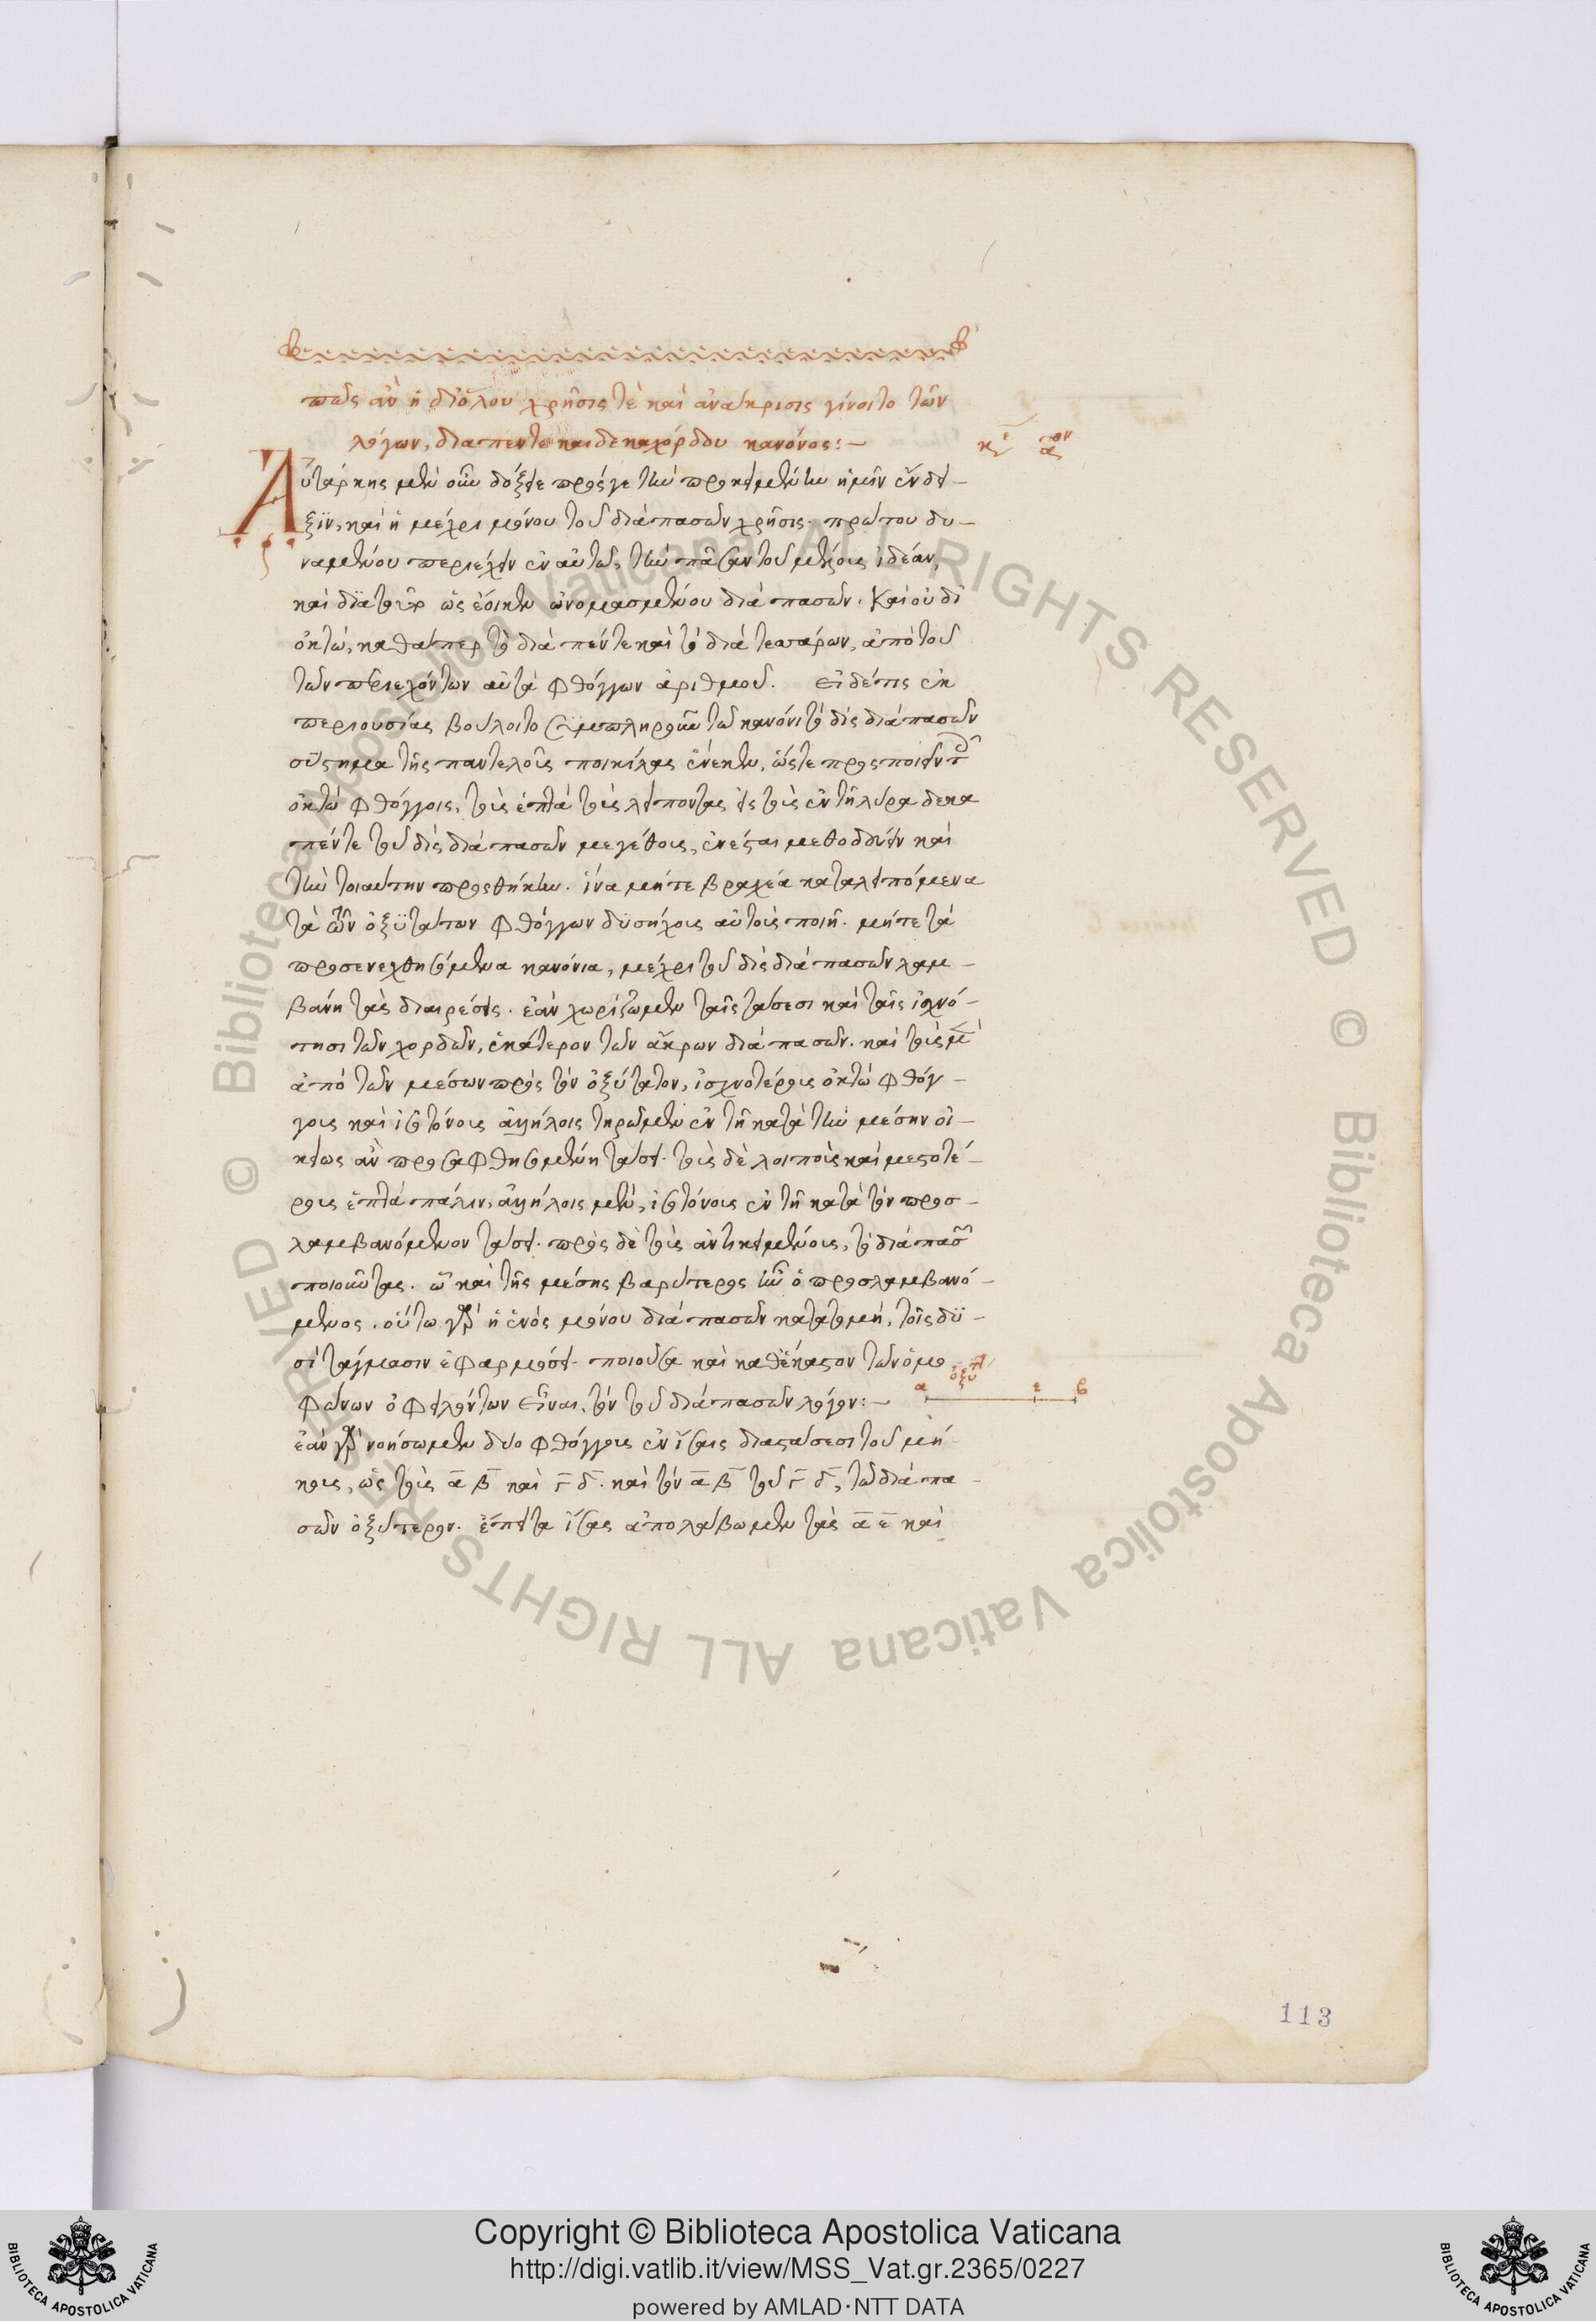 πῶς ἂν ἡ διόλου χρῆσις τὲ καὶ ἀνάκρισις γίνοιτο τῶν
λόγων, διαπεντε καιδεκαχόρδου κανόνος:—
κε ον
Αὐτάρκης μὲν οὖν δόξειε πρός γε τὴν προκειμένην ἡμῖν ἔνδει-
ξϊν, καὶ ἡ μέχρι μόνου τοῦ διάπασῶν χρῆσις. πρώτου δυ-
ναμένου περιέχειν ἐν αὐτῶ, τὴν πᾶσαν τοῦ μέλους ἰδέαν,
καὶ διατοῦτο ὡς ἔοικεν ὠνομασμένου διάπασῶν. Καὶ οὐ δι
ὀκτώ, καθάπερ τὸ διὰ πέντε καὶ τὸ διὰ τεσσάρων, ἀπὸ τοῦ
τῶν περιεχόντων αὐτὰ φθόγγων ἀριθμοῦ. Εἰ δέ τις ἐκ
περιουσίας βούλοιτο συμπληροῦν τῶ κανόνι τὸ δὶς διάπασῶν
σύστημα τῆς παντελοῦς ποικίλας ἕνεκεν, ὥστε προσποιεῖν τοῖς
ὀκτὼ φθόγγοις, τοὺς ἑπτὰ τοὺς λείποντας εἰς τοὺς ἐν τῆ λύρα δεκα
πέντε τοῦ δὶς διάπασῶν μεγέθους, ἐνέσται μεθοδεύειν καὶ
τὴν τοιαύτην προσθήκην. ἵνα μήτε βραχέα καταλειπόμενα
τὰ τῶν ὀξϋτάτων φθόγγων δϋσήχους αὐτοὺς ποιῆ. μήτε τὰ
προσενεχθησόμενα κανόνια, μέχρι τοῦ δὶς διάπασῶν λαμ-
βάνη τὰς διαιρέσεις. ἐὰν χωρίζωμεν ταῖς τάσεσι καὶ ταῖς ἰσχνό-
τησι τῶν χορδῶν, ἑκάτερον τῶν ἄκρων διάπασῶν. καὶ τοὺς μὲν
ἀπὸ τῶν μέσων πρὸς τὸν ὀξύτατον, ἰσχνοτέρους ὀκτὼ φθόγ-
γους καὶ ἰσοτόνους ἀλλήλοις τηρῶμεν ἐν τῆ κατὰ τὴν μέσην οἰ-
κείως ἂν προσαφθησομένη τάσει. τοὺς δὲ λοιποὺς καὶ μεστοτέ-
ρους ἑπτὰ πάλιν, ἀλλήλοις μὲν, ἰσοτόνους ἐν τῆ κατὰ τὸν προσ-
λαμβανόμενον τάσει. πρὸς δὲ τοὺς ἀντικειμένους, τὸ διάπασῶν
ποιοῦντας. ὧ καὶ τῆς μέσης βαρύτερος ἦν ὁ προσλαμβανό-
μενος. οὕτω γὰρ ἡ ἑνὸς μόνου διάπασῶν κατατομή, τοῖς δϋ-
σὶ τάγμασιν ἐφαρμόσει. ποιοῦσα καὶ καθἕκαστον τῶν ὁμο
φώνων ὀφειλόντων εἶναι, τὸν τοῦ διάπασῶν λόγον:—
α ε β
ἐὰν γὰρ νοήσωμεν δύο φθόγγους ἐν ἴσαις διαστάσεσι τοῦ μή-
κους, ὡς τοὺς α β καὶ γ δ. καὶ τὸν α β τοῦ γ δ, τῶ διάπα-
σῶν ὀξύτερον. ἔπειτα ἴσας ἀπολάβωμεν τὰς α ε καὶ
113
Copyright © Biblioteca Apostolica Vaticana
http://digi.vatlib.it/view/MSS_Vat.gr.2365/0227
powered by AMLAD·NTT DATA
BIBLIOTECA APOSTOLICA VATICANA
BIBLIOTECA APOSTOLICA VATICANA
© Biblioteca Apostolica Vaticana ALL RIGHTS RESERVED © Biblioteca Apostolica Vaticana ALL RIGHTS RESERVED